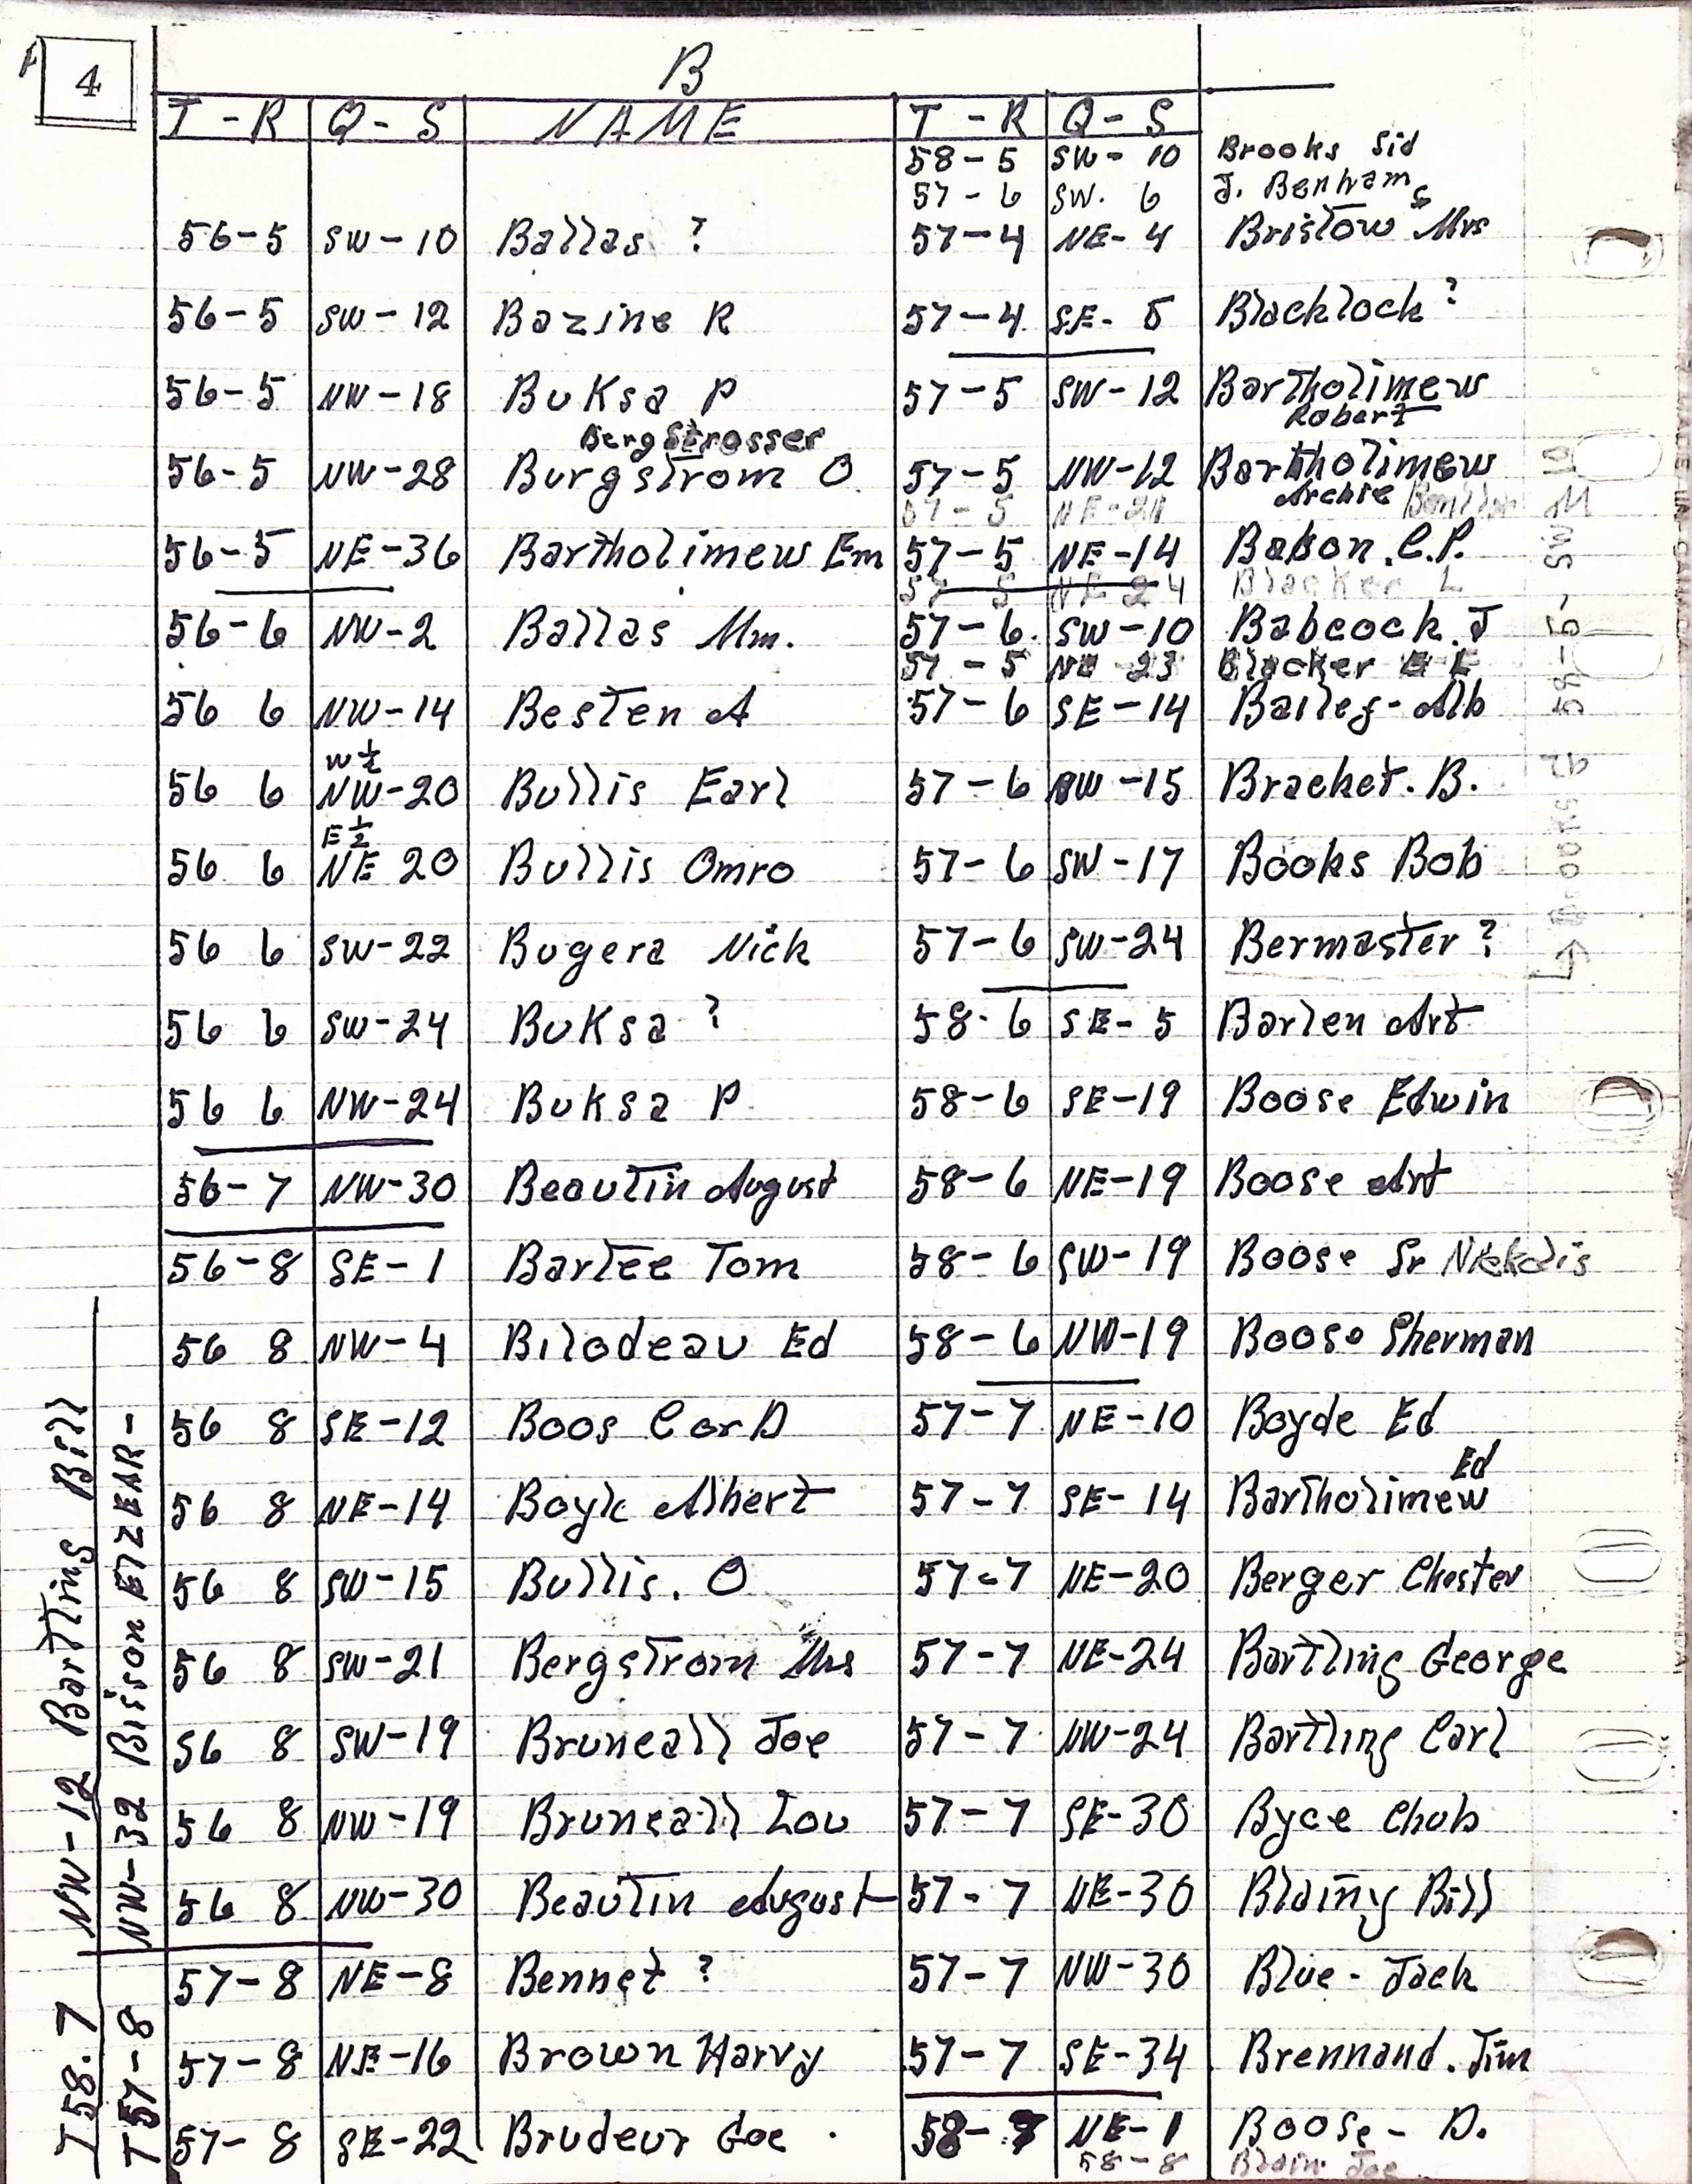 4
B
T - R Q - S NAME
56-5 SW-10 Ballas ?
56-5 SW-12 Bazine R
56-5 NW-18 Buksa P
BergStrosser
56-5 NW-28 Burgstrom O.
56-5 NE-36 Bartholimew Em
56-6 NW-2 Ballas Mm.
56 6 NW-14 Besten A
W 1/2
56 6 NW-20 Bullis Earl
E 1/2
56 6 NE 20 Bullis Omro
56 6 SW-22 Bugera Nick
56 6 SW-24 Buksa ?
56 6 NW-24 Buksa P
56-7 NW-30 Beautin August
56-8 SE-1 Bartee Tom
56 8 NW-4 Bilodeau Ed
56 8 SE-12 Boos Car D
56 8 NE-14 Boyle Albert
56 8 SW-15 Bullis. O
56 8 SW-21 Bergstrom Mrs
56 8 SW-19 Bruneall Joe
56 8 NW-19 Bruneall Lou
56 8 NW-30 Beautin August
57-8 NE-8 Bennet ?
57-8 NE-16 Brown Harvy
57-8 SE-22 Brudeur Goe
T - R Q - S
58-5 SW-10 Brooks Sid
57-6 SW. 6 J. Benham
57-4 NE-4 Bristow Mrs
57-4 SE-5 Blacklock ?
57-5 SW-12 Bartholimew
Robert
57-5 NW-12 Bartholimew
Archie
57-5
57-5 NE-14 Babon. C.P.
57 5 NE 24 Blacker L
57-6 SW-10 Babcock. J
57-5 23 Blacker E
57-6 SE-14 Bailey-Alb
57-6 NW-15 Bracket. B.
57-6 SW-17 Books Bob
57-6 SW-24 Bermaster ?
58-6 SE-5 Barlen Art
58-6 SE-19 Boose Edwin
58-6 NE-19 Boose Art
58-6 SW-19 Boose Sr
58-6 NW-19 Boose Sherman
57-7 NE-10 Boyde Ed
Ed
57-7 SE-14 Bartholimew
57-7 NE-20 Berger Chester
57-7 NE-24 Bartling George
57-7 NW-24 Bartling Carl
57-7 SE-30 Byce Chub
57-7 NE-30 Blainy Bill
57-7 NW-30 Blue-Jack
57-7 SE-34 Brennand. Jim
58-7 NE-1 Boose-D.
58-8 Blain Joe
T58.7 NW-12 Bartling Bill
T57-8 NW-32 Bisson ElZEAR-
Brooks 58-5-SW 10